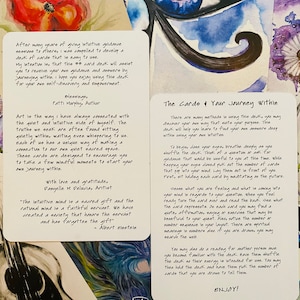 After many years of giving intuitive guidance
sessions to others, I was compelled to develop a
deck of cards that is easy to use.
My intention is that this 44 card deck will assist
you to receive your own guidance and answers by
journeying within. I hope you enjoy using this deck
for your own self-discovery and empowerment.
Blessings,
Patti Murphy, Author
Art is the way I have always connected with
the quiet and intuitive side of myself. The
truths we seek are often found sitting
quietly within, waiting
Each of us has a unique way of making a
connection to our own quiet sacred space.
These cards are designed to encourage you
to take a few mindful moments to start your
own journey within.
With love and gratitude,
Artist
"The intuitive mind is a sacred gift and the
rational mind is a faithful servant. We have
created a society that honors the servant
and has forgotten the gift."
- Albert Einstein
The Cards & Your Journey Within
There are many methods to using this deck, you may
discover your own way that suits your purpose. This
deck will help you learn to find your own answers deep
within using your own intuition.
To begin, close your eyes, breathe deeply as you
shuffle the deck. Think of a question or ask for
guidance that would be useful to you at this time. While
keeping your eyes closed pull out the number of cards
that
first, or holding each card by meditating on the picture.
Notice what you are feeling and what is coming into
your mind in regards to your question. When you feel
ready turn the card over and read the back. See what
the card represents. On each card you may find a
quote, affirmation, inquiry or exercise that may be
beneficial to your quest. Also notice the number or
number sequence in your layout. There are mystical
meanings in numbers also if you are drawn you may
search the web.
You may also do a reading for another person once
you become familiar with the deck. Have them shuffle
the deck as their energy is intended for use. You may
then hold the deck and have them pull the number of
cards that you are drawn to tell them.
ENJOY!